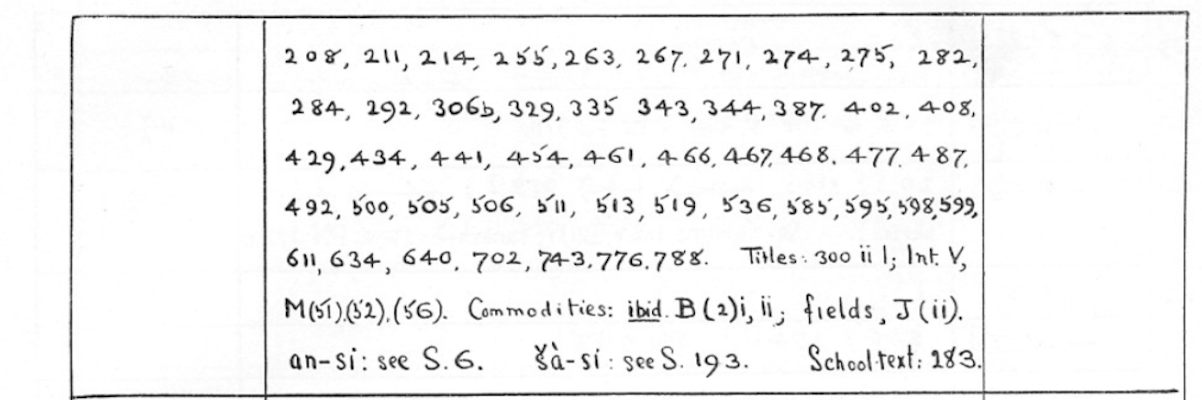 208, 211, 214, 255, 263, 267, 271, 274, 275, 282,
284, 292, 306b, 329, 335 343, 344, 387. 402, 408,
429, 434, 441, 454, 461, 466, 467, 468. 477. 487.
492, 500, 505, 506, 511, 513, 519, 536, 585, 595, 598, 599,
611, 634, 640, 702, 743, 776, 788. Titles: 300 ii 1; Int. V,
M(51),(52),(56). Commodities: ibid. B(2)i, ii; fields, J(ii).
an-si: see S.6. šà-si: see S. 193. School text: 283.